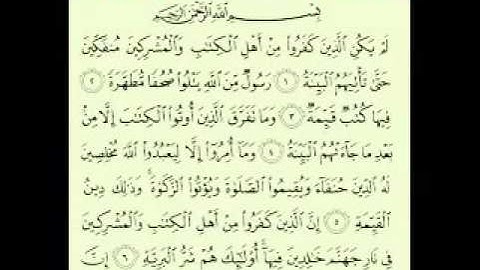 بِسْمِ ٱللَّهِ ٱلرَّحْمَٰنِ ٱلرَّحِيمِ
لَمْ يَكُنِ ٱلَّذِينَ كَفَرُوا۟ مِنْ أَهْلِ ٱلْكِتَٰبِ وَٱلْمُشْرِكِينَ مُنفَكِّينَ
حَتَّىٰ تَأْتِيَهُمُ ٱلْبَيِّنَةُ ١ رَسُولٌ مِّنَ ٱللَّهِ يَتْلُوا۟ صُحُفًا مُّطَهَّرَةً ٢
فِيهَا كُتُبٌ قَيِّمَةٌ ٣ وَمَا تَفَرَّقَ ٱلَّذِينَ أُوتُوا۟ ٱلْكِتَٰبَ إِلَّا مِنۢ
بَعْدِ مَا جَآءَتْهُمُ ٱلْبَيِّنَةُ ٤ وَمَآ أُمِرُوٓا۟ إِلَّا لِيَعْبُدُوا۟ ٱللَّهَ مُخْلِصِينَ
لَهُ ٱلدِّينَ حُنَفَآءَ وَيُقِيمُوا۟ ٱلصَّلَوٰةَ وَيُؤْتُوا۟ ٱلزَّكَوٰةَ ۚ وَذَٰلِكَ دِينُ
ٱلْقَيِّمَةِ ٥ إِنَّ ٱلَّذِينَ كَفَرُوا۟ مِنْ أَهْلِ ٱلْكِتَٰبِ وَٱلْمُشْرِكِينَ
فِى نَارِ جَهَنَّمَ خَٰلِدِينَ فِيهَآ ۚ أُو۟لَٰٓئِكَ هُمْ شَرُّ ٱلْبَرِيَّةِ ٦ إِنَّ